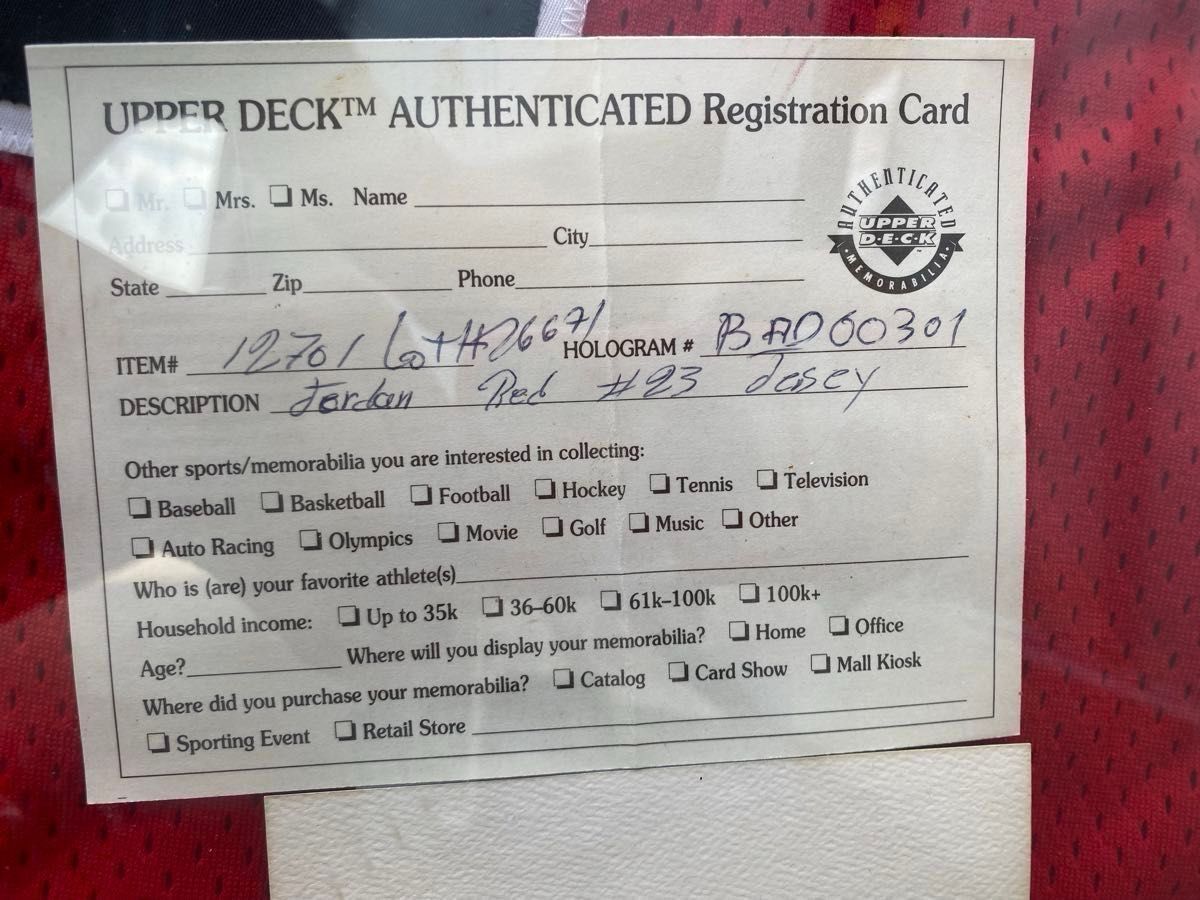 UPPER DECK™ AUTHENTICATED Registration Card
❏ Mr. ❏ Mrs. ❏ Ms. Name
AUTHENTICATED
UPPER
D·E·C·K
·MEMORABILIA·
Address City
State Zip Phone
ITEM# 12701 Lot#26671 HOLOGRAM # BAD00301
DESCRIPTION Jordan Red #23 Jesey
Other sports/memorabilia you are interested in collecting:
❏ Baseball ❏ Basketball ❏ Football ❏ Hockey ❏ Tennis ❏ Television
❏ Auto Racing ❏ Olympics ❏ Movie ❏ Golf ❏ Music ❏ Other
Who is (are) your favorite athlete(s)
Household income: ❏ Up to 35k ❏ 36–60k ❏ 61k–100k ❏ 100k+
Age? Where will you display your memorabilia? ❏ Home ❏ Office
Where did you purchase your memorabilia? ❏ Catalog ❏ Card Show ❏ Mall Kiosk
❏ Sporting Event ❏ Retail Store